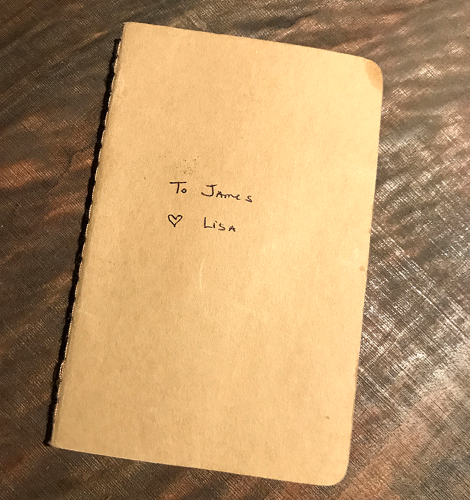 To James
♡ Lisa